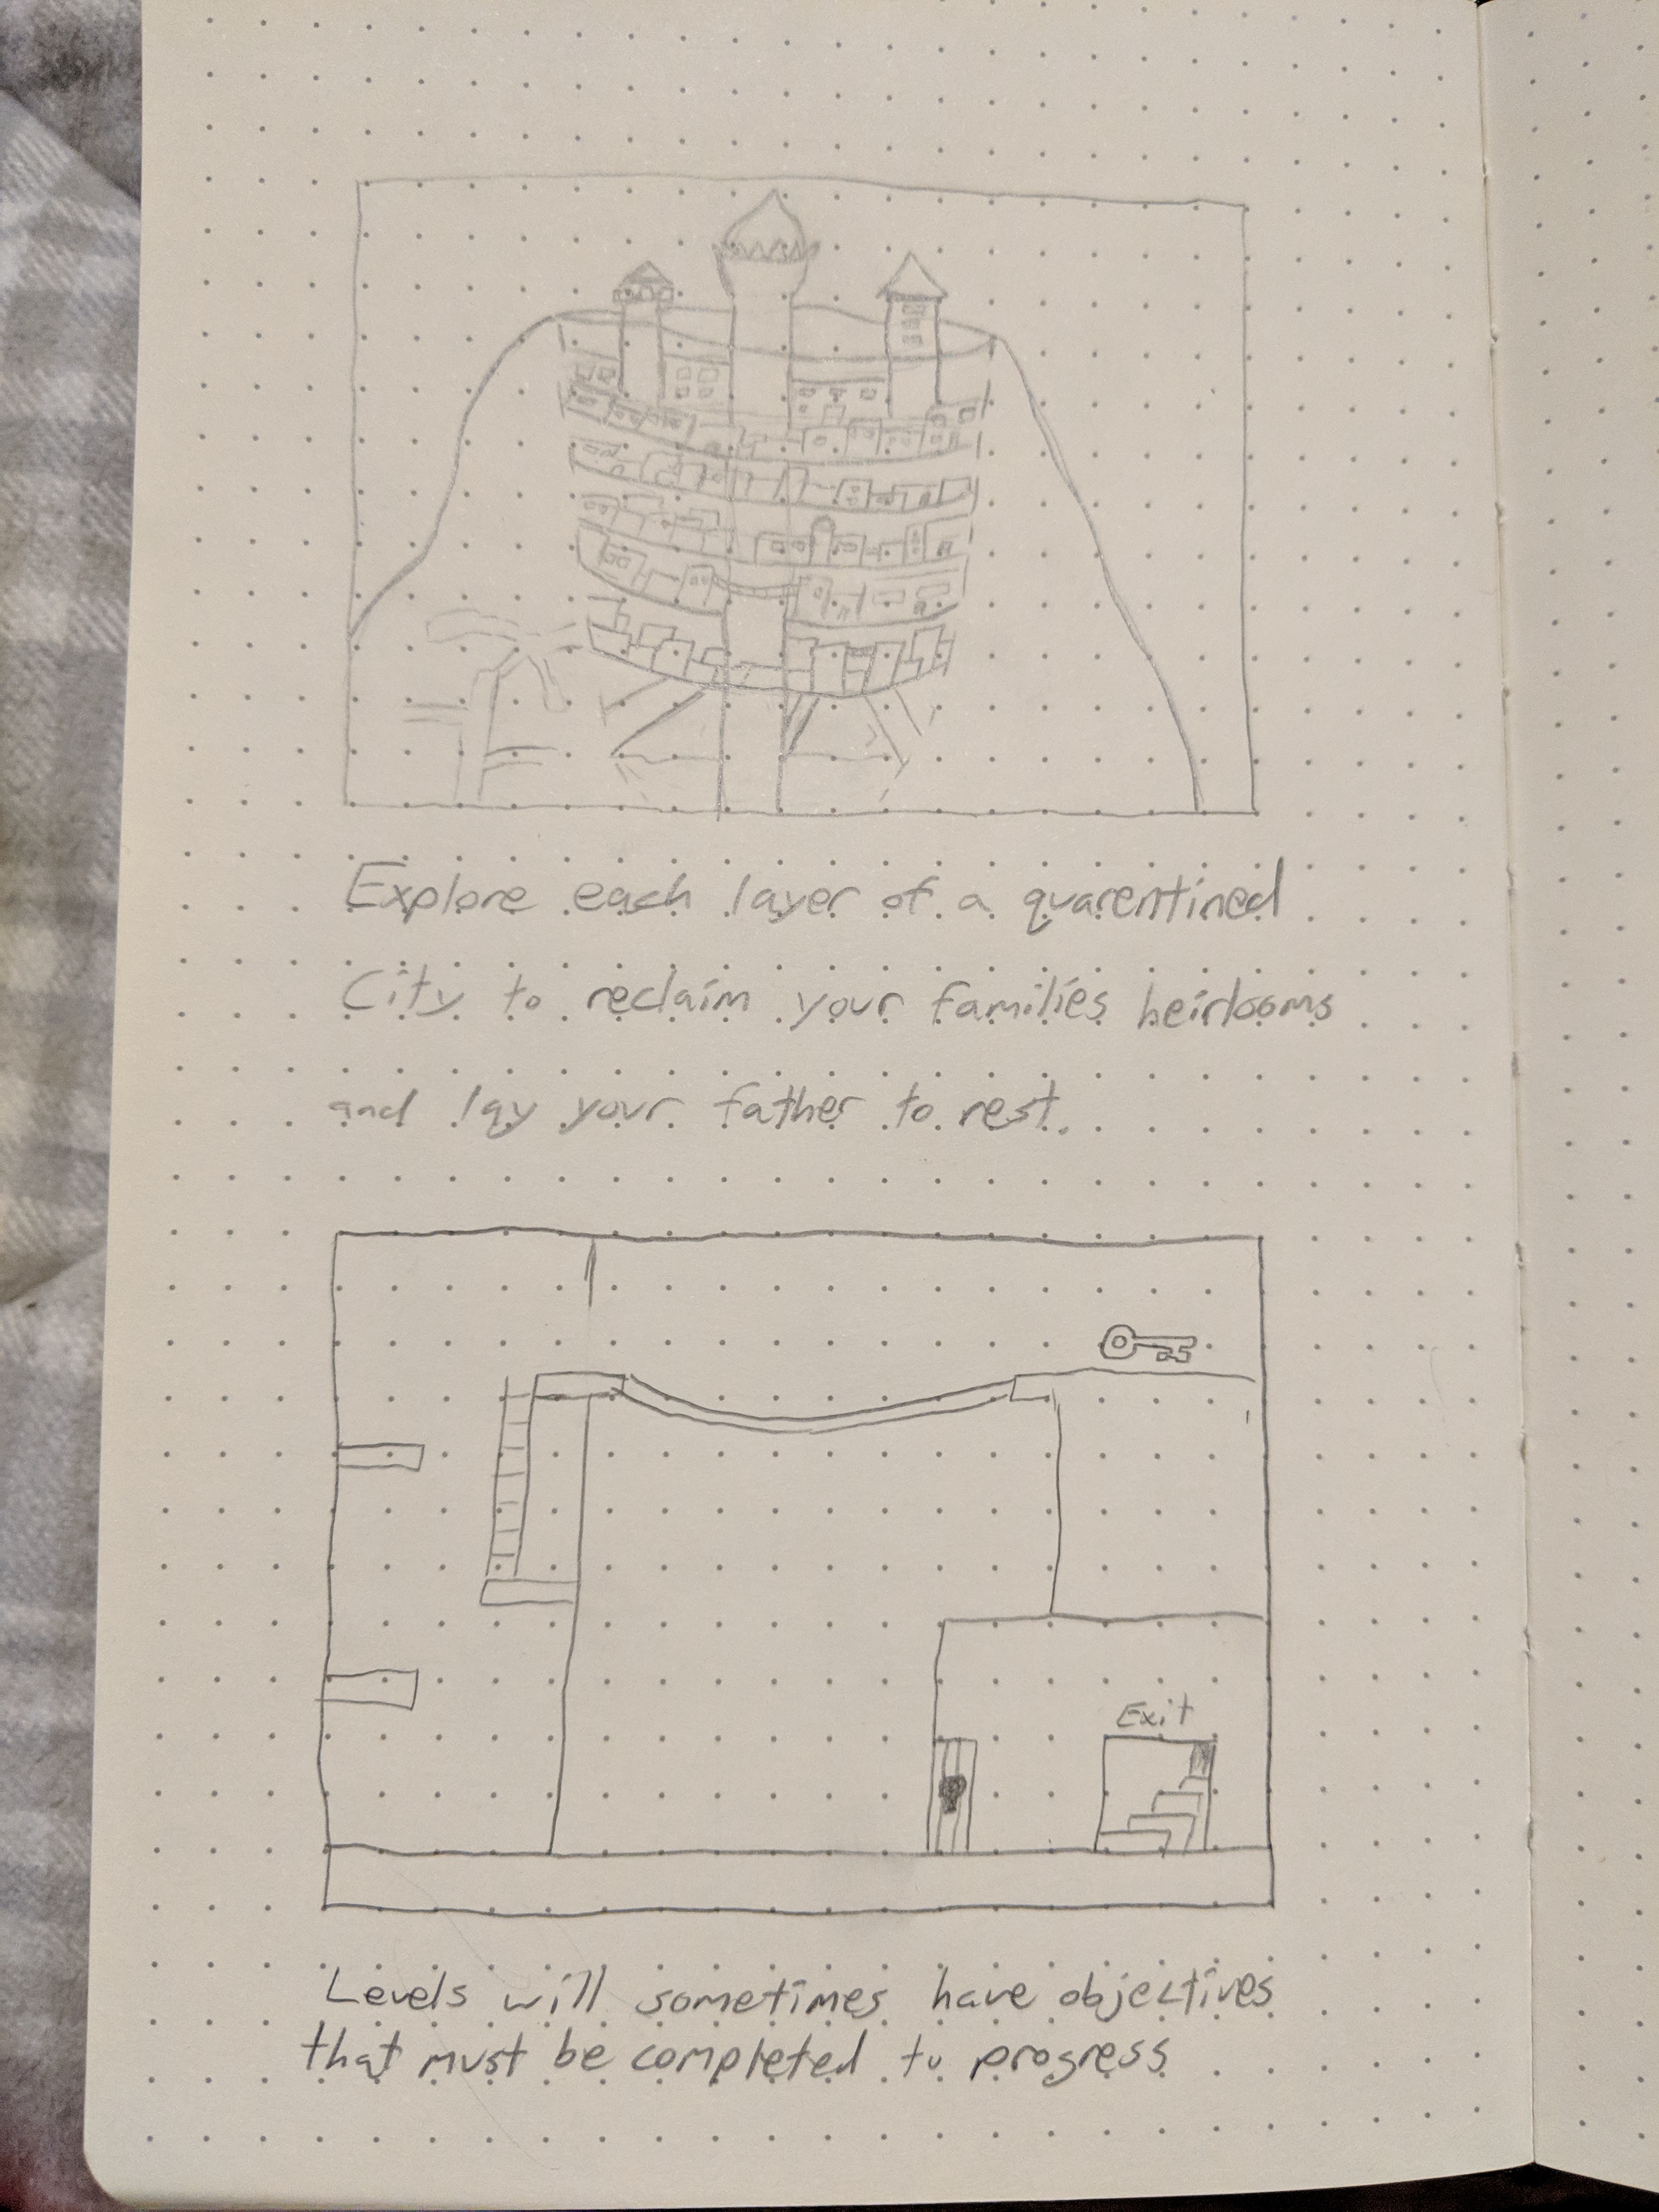 Explore each layer of a quarentined
City to reclaim your families heirlooms
and lay your father to rest.
Exit
Levels will sometimes have objectives
that must be completed to progress